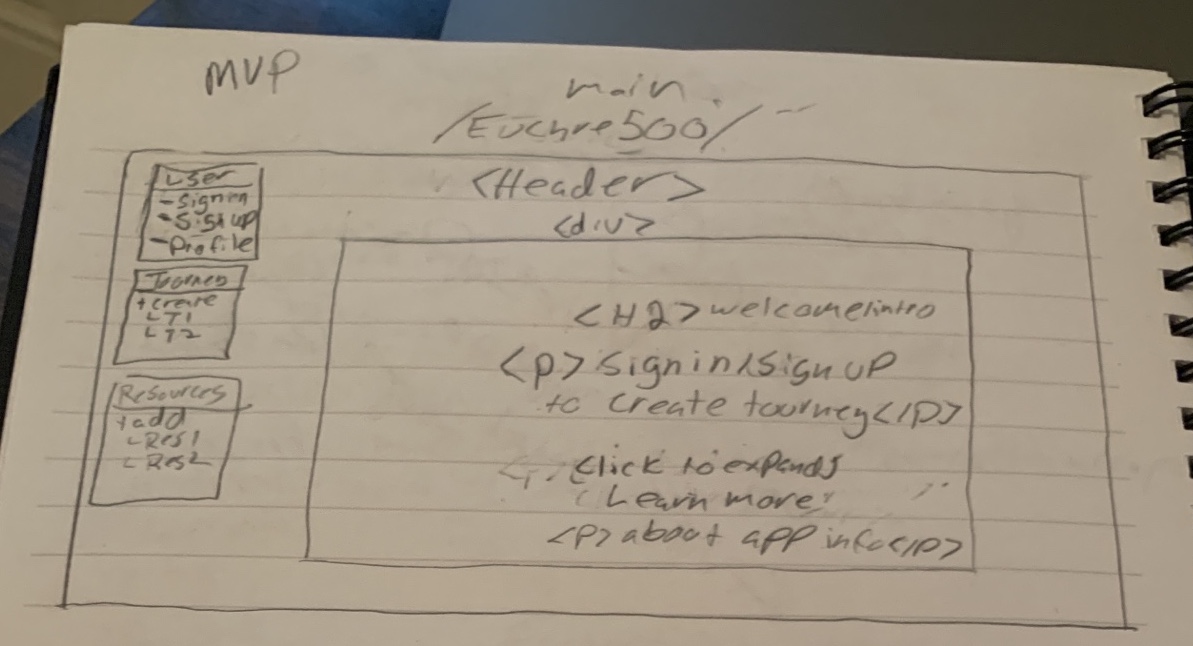 MVP
main
/Euchre500/
User
- Signin
- Sign up
- Profile
Tourney
+ create
L T1
L T2
Resources
+ add
L Res1
L Res2
<Header>
<div>
<H2> welcome/intro
<p> sign in/sign up
to create tourney</p>
click to expand
Learn more
<p> about app info</p>